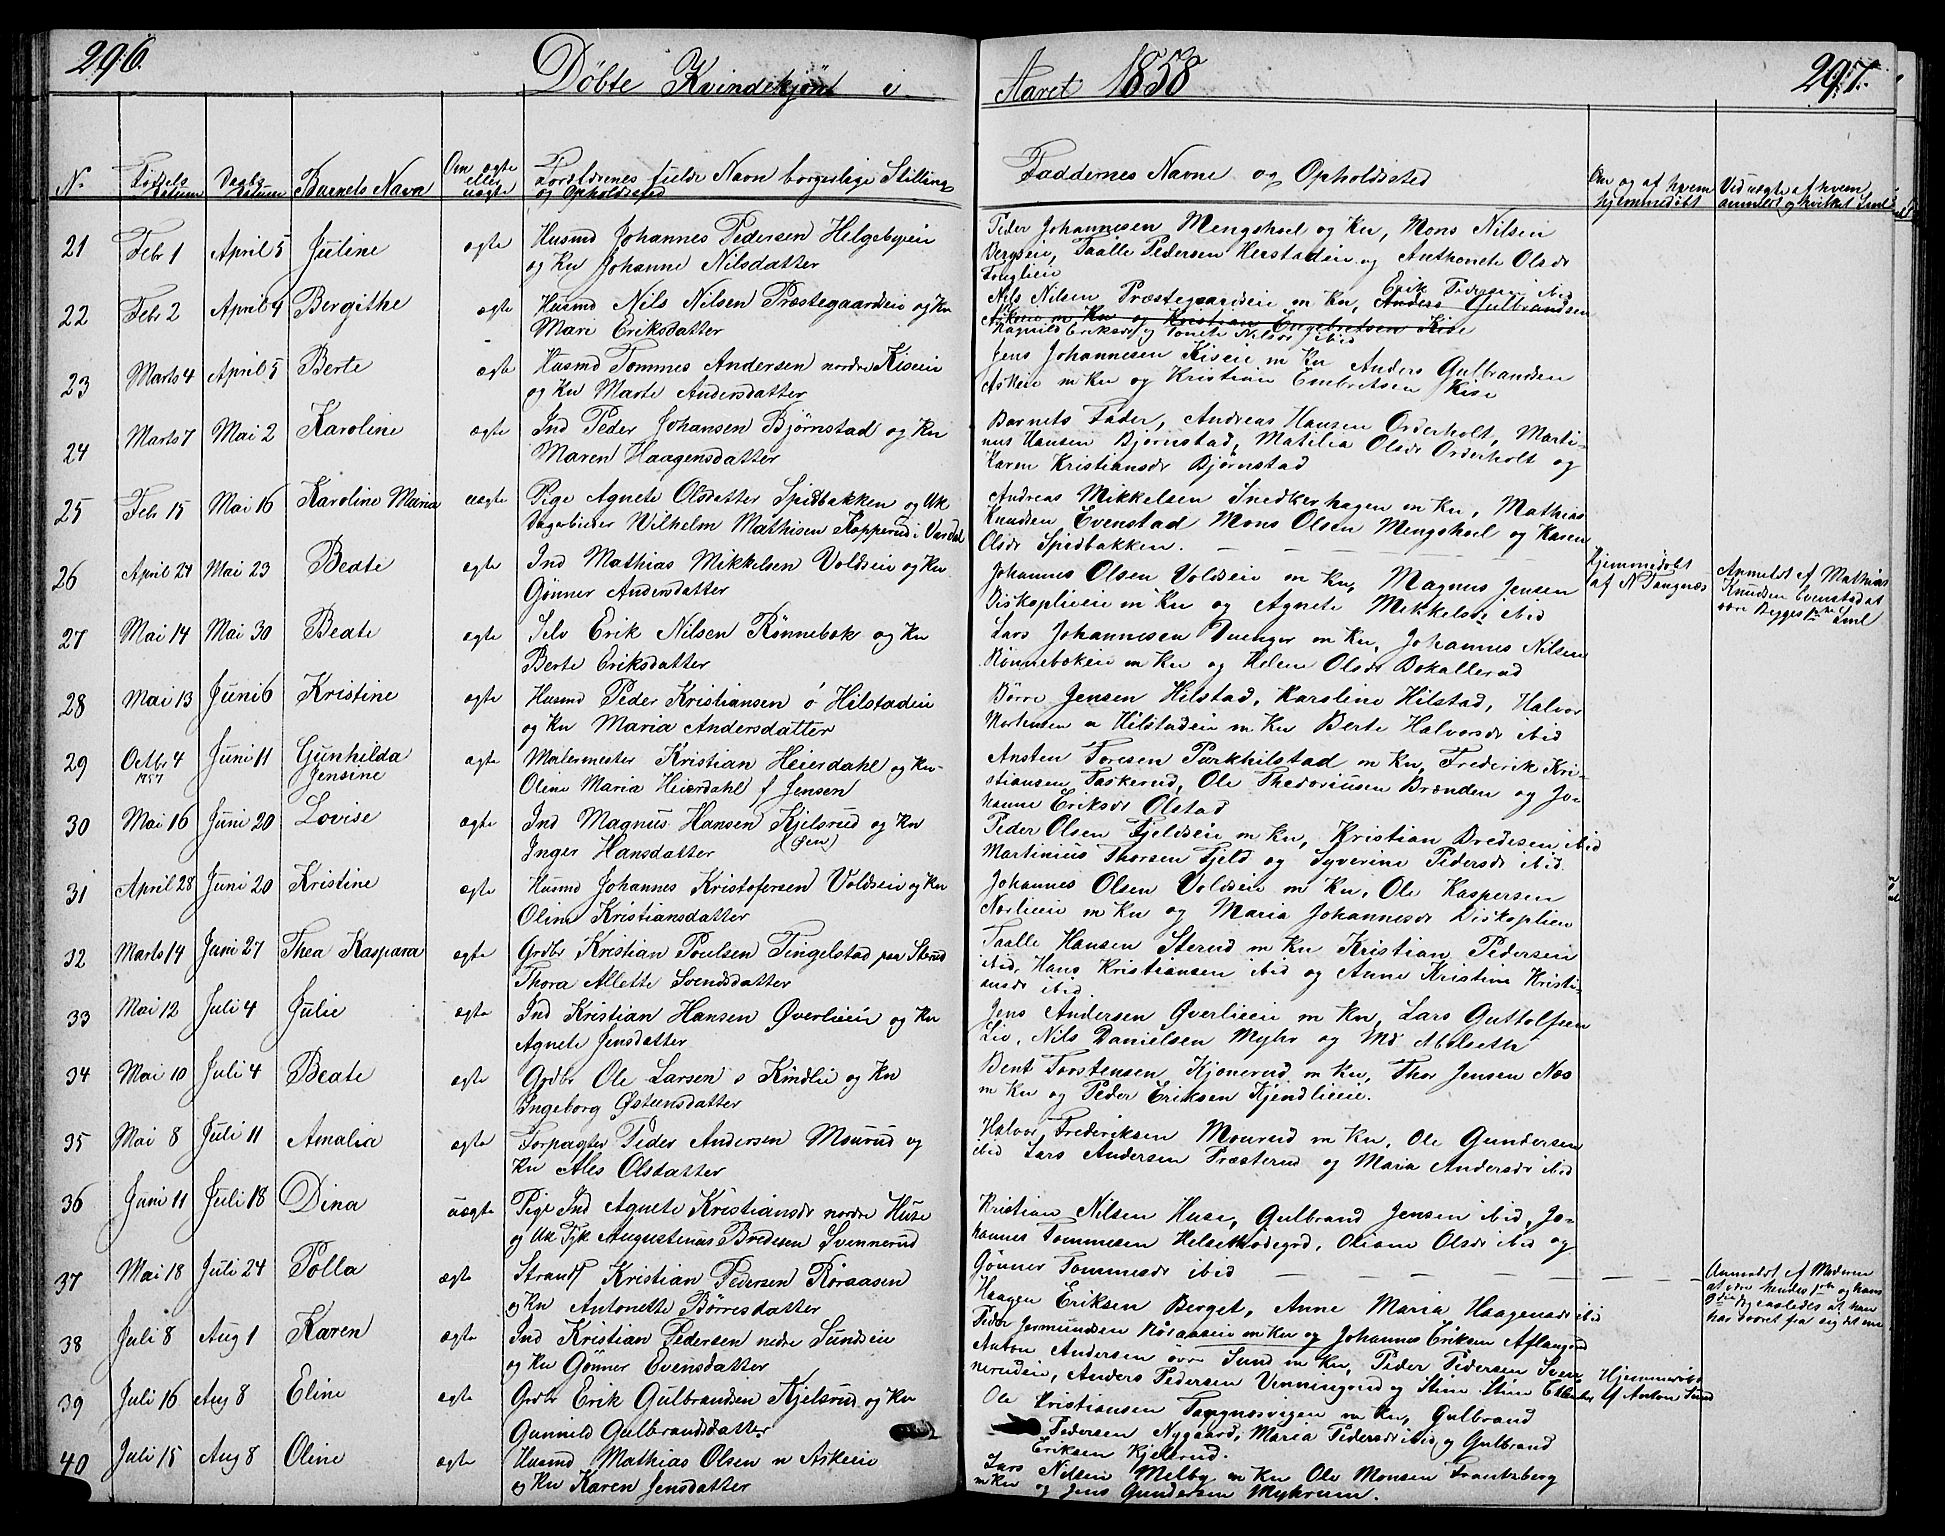 296.
Døbte Kvindekjønt i
Aaret 1858
297.
No
Fødsels Datum
Daabs Datum
Barnets Navn
Om ægte eller uægte
Forældrenes fulde Navn borgerlige Stilling og Opholdssted
Faddernes Navne og Opholdssted
Om og af hvem hjemmedøbt
Ved uægte af hvem anmeldt og hvilket Leiermaal
21 Febr 1 April 5 Juline ægte Husmd Johannes Pedersen Helgebyeie
og Kn Johanne Nilsdatter
Peder Johannesen Mengshoel og Kn, Mons Nilsen
Bergseie, Taalle Pedersen Herstadeie og Anthonete Olsdr
Fuglieie
22 Febr 2 April 4 Bergithe ægte Husmd Nils Nilsen Præstegaardseie og Kn
Mari Eriksdatter
Erik Pedersen ibid
Nils Nilsen Præstegaardseie m Kn, Anders Gulbrandsen
Askeie m Kn og Kristian Engebretsen Kise
Ragnild Eriksdr og Tonete Nilsdr ibid
23 Marts 4 April 5 Berte ægte Husmd Tommes Andersen nordre Kiseie
og Kn Marte Andersdatter
Jens Johannesen Kiseie m Kn Anders Gulbrandsen
Askeie m Kn og Kristian Embretsen Kise
24 Marts 7 Mai 2 Karoline ægte Ind Peder Johansen Bjørnstad og Kn
Maren Haagensdatter
Barnets Fader, Andreas Hansen Orderholt, Marti-
nus Hansen Bjørnstad, Matilia Olsdr Orderholt og
Karen Kristiansdr Bjørnstad
25 Febr 15 Mai 16 Karoline Maria uægte Pige Agnete Olsdatter Spidbakken og Uk
Dagarbeider Wilhelm Mathisen Kopperud i Vardal
Andreas Mikkelsen Snedkerhagen m Kn, Mathias
Knudsen Evenstad Mons Olsen Mengshoel og Karen
Olsdr Spidbakken.
26 April 24 Mai 23 Beate ægte Ind Mathias Mikkelsen Voldseie og Kn
Gønner Andersdatter
Johannes Olsen Voldseie m Kn, Magnus Jensen
Diskoplieie m Kn og Agnete Mikkelsdr ibid
Hjemmedøbt
af N Tangnæs
Anmeldt af Mathias
Knudsen Evenstad at
være Begges 1ste Leierm
27 Mai 14 Mai 30 Beate ægte Selv Erik Nilsen Rønnebæk og Kn
Berte Eriksdatter
Lars Johannesen Duenger m Kn, Johannes Nilsen
Rønnebekeie m Kn og Helene Olsdr Bokallerud
28 Mai 13 Juni 6 Kristine ægte Husmd Peder Kristiansen ø Hilstadeie
og Kn Maria Andersdatter
Børre Jensen Hilstad, Karoline Hilstad, Halvor
Mortensen ø Hilstadeie m Kn Berte Halvorsdr ibid
29 Octbr 4 1857 Juni 11 Gunhilda
Jensine ægte Malermester Kristian Heierdahl og Kn
Oline Maria Heierdahl f Jensen
Ansten Toresen Parkhilstad m Kn, Frederik Kri-
stiansen Taskerud, Ole Thedoriusen Brænden og Jo-
hanne Eriksdr Olstad
30 Mai 16 Juni 20 Lovise ægte Ind Magnus Hansen Kjelsrud og Kn
Inger Hansdatter
Peder Olsen Fjeldseie m Kn, Kristian Bredesen ibid
Martinius Thorsen Fjeld og Syverine Pedersdr ibid.
31 April 28 Juni 20 Kristine ægte Husmd Johannes Kristofersen Voldseie og Kn
Oline Kristiansdatter
Johannes Olsen Voldseie m Kn, Ole Kaspersen
Norlieie m Kn og Maria Johannesdr Diskoplien
32 Marts 14 Juni 27 Thea Kaspara ægte Grdbr Kristian Poulsen Tingelstad paa Sterud
Thora Allette Svendsdatter
Taalle Hansen Sterud m Kn Kristian Pedersen
ibid, Hans Kristiansen ibid og Anne Kristine Kristi-
ansdr ibid.
33 Mai 12 Juli 4 Julie ægte Ind Kristian Hansen Øverlieeie og Kn
Agnete Jensdatter
Jens Andersen Øverlieeie m Kn, Lars Guttolfsen
Lie, Nils Danielsen Myhr og Md Abelseth
34 Mai 10 Juli 4 Beate ægte Grdbr Ole Larsen s Kindlie og Kn
Ingeborg Østensdatter
Bent Torstensen Kjonerud m Kn, Thor Jensen Næs
m Kn og Peder Eriksen Kjendlieeie.
35 Mai 8 Juli 11 Amalia ægte Forpagter Peder Andersen Mourud og
Kn Ales Olsdatter
Halvor Frederiksen Mourud m Kn, Ole Gundersen
ibid Lars Andersen Præsterud og Maria Andersdr ibid
36 Juni 11 Juli 18 Dina uægte Pige Ind Agnete Kristiansdr nordre Huse
og Uk Tyk Augustenus Bredesen Svennerud
Kristian Nilsen Huse, Gulbrand Jensen ibid, Jo-
hannes Tommesen Helsethødegrd, Oliane Olsdr ibid og
Gønner Tommesdr ibid
37 Mai 18 Juli 24 Polla ægte Strands Kristian Pedersen Røraasen
og Kn Antonette Børresdatter
Haagen Eriksen Berget, Anne Maria Haagensdr ibid
Peder Jermundsen Røraaseie m Kn og Johannes Eriksen Aflangrud
Anmeldt af Moderen
38 Juli 8 Aug 1 Karen ægte Ind Kristian Pedersen nedre Sundseie
og Kn Gønner Evensdatter
Anton Andersen øvre Sund m Kn, Peder Pedersen Sven-
nerudeie, Anders Pedersen Venningrud og
39 Juli 16 Aug 8 Eline ægte Grdbr Erik Gulbrandsen Kjelsrud og Kn
Gunnild Gulbrandsdatter
Ole Kristiansen Tangnæsvegen m Kn, Gulbrand
Pedersen Nygaard, Maria Pedersdr ibid og Gulbrand
Eriksen Kjelsrud.
Hjemmedøbt
af Anton Sund
40 Juli 15 Aug 8 Oline ægte Husmd Mathias Olsen n Askeie
og Kn Karen Jensdatter
Lars Nilsen Melby m Kn Ole Monsen Frantzberg
m Kn og Jens Gundersen Myhrum.